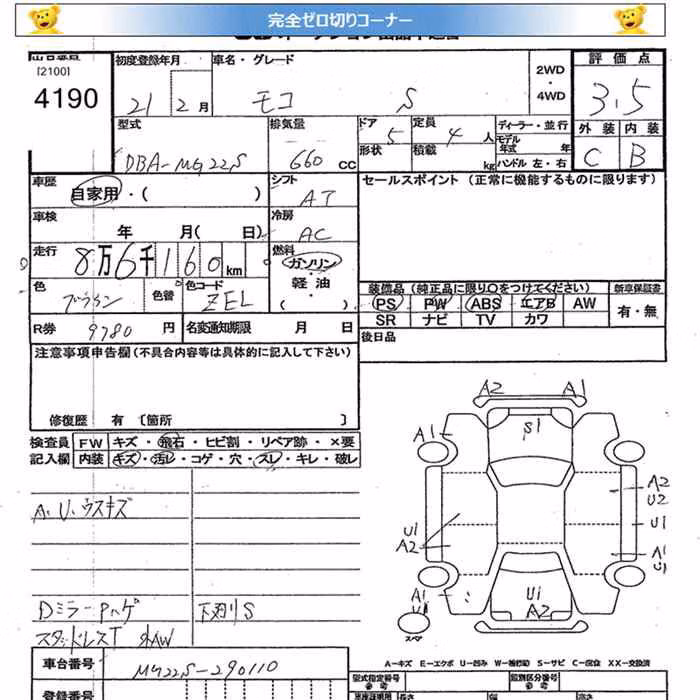 完全ゼロ切りコーナー
[2100]
4190
初度登録年月
21 2月
車名・グレード
モコ S
2WD
・
4WD
評価点
3.5
外装 内装
C B
型式
DBA-MG22S
排気量
660 CC
ドア 5
形状
定員 4人
積載 kg
ディーラー・並行
モデル年式 年
ハンドル 左・右
車歴
自家用・( )
シフト
AT
セールスポイント (正常に機能するものに限ります)
車検
年 月( 日)
冷房
AC
走行
8万6千160km
燃料
ガソリン
・
軽油
( )
色
ブラウン
色替
色コード
ZEL
装備品(純正品に限り○をつけてください)
PS PW ABS エアB AW
SR ナビ TV カワ
新車保証書
有・無
R券 9780 円
名変通知期限 月 日
後日品
注意事項申告欄(不具合内容等は具体的に記入して下さい)
修復歴 有 〔箇所 〕
検査員
記入欄
FW キズ・飛石・ヒビ割・リペア跡・×要
内装 キズ・汚レ・コゲ・穴・スレ・キレ・破レ
A.U.ウスキズ
Dミラー Pハゲ
下廻りS
スタッドレスT 社外AW
A2 A1
A1
S1
A2
U2
U1
U1
A2
A1
U1
A1
U1
U1
A2
スペア
A-キズ E-エクボ U-凹み W-補修跡 S-サビ C-腐食 XX-交換済
車台番号
MG22S-290110
登録番号
型式指定番号
参考
類別区分番号
参考
車両寸法 長さ 幅 高さ